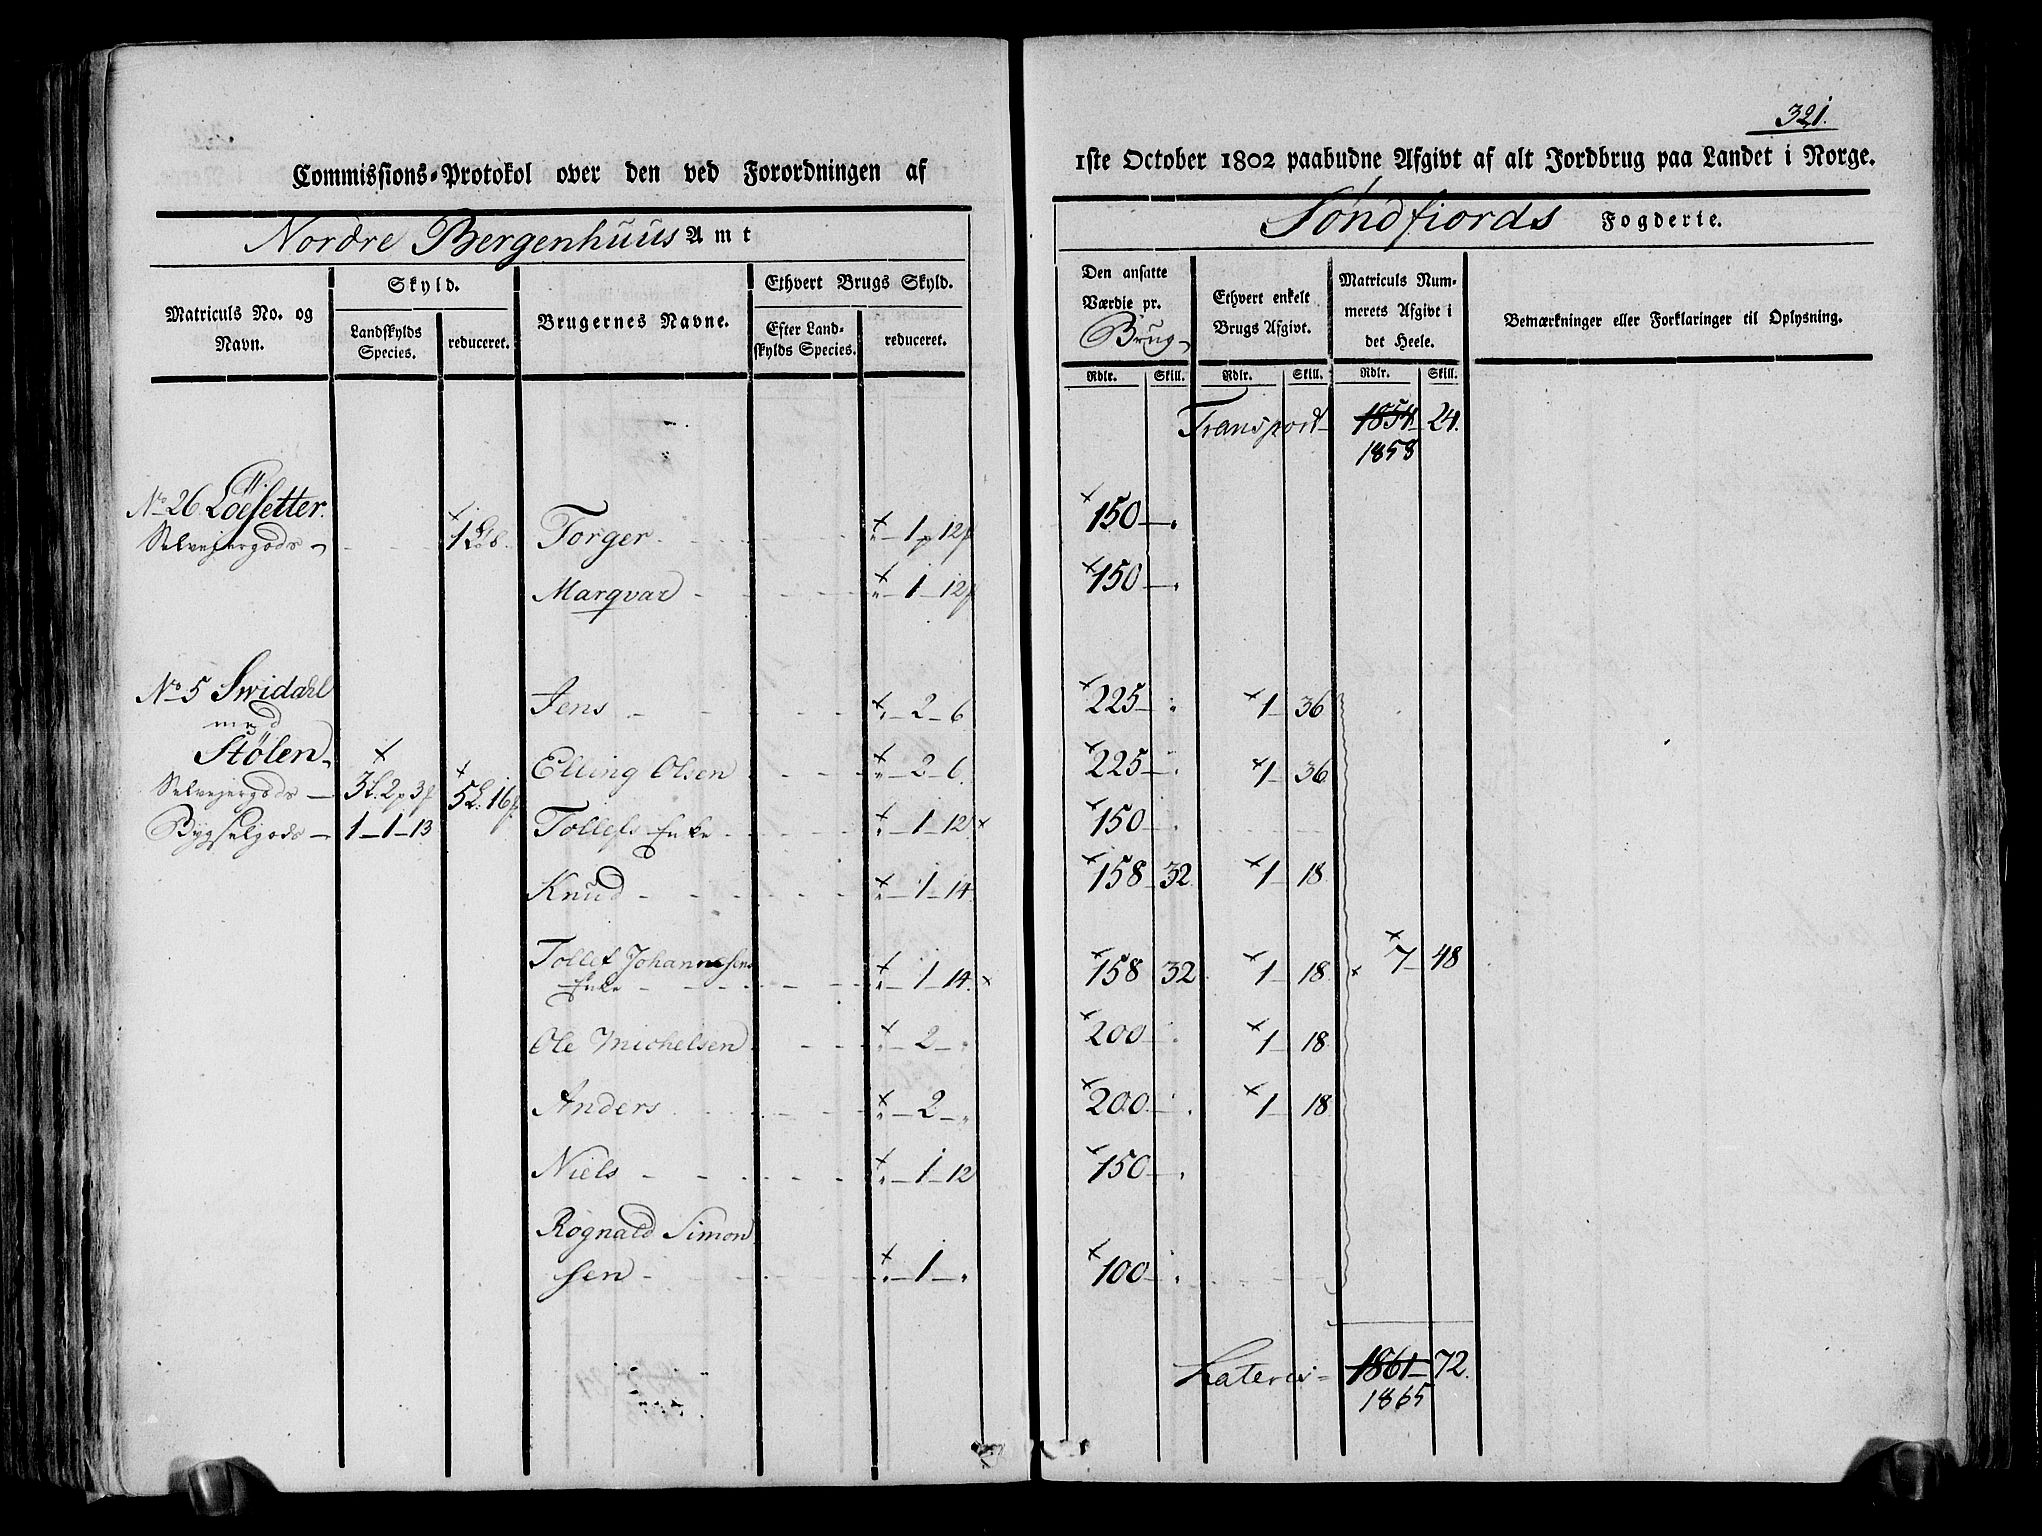 321.
Commissions-Protokol over den ved Forordningen af 1ste October 1802 paabudne Afgivt af alt Jordbrug paa Landet i Norge.
Nordre Bergenhuus Amt Søndfiords Fogderie.
Matriculs No. og Navn.
Skyld.
Landskylds Species.
reduceret.
Brugernes Navne.
Ethvert Brugs Skyld.
Efter Landskylds Species.
reduceret.
Den ansatte Værdie pr. Brug
Ethvert enkelt Brugs Afgivt.
Matriculs Nummerets Afgivt i det Heele.
Bemærkninger eller Forklaringer til Oplysning.
Rdlr. Skill. Rdlr. Skill. Rdlr. Skill.
Transport 1854 24.
1858
No 26 Löesetter.
Selvejergods Torger " 1 p 12 150
Marqvar " 1 12 150
No 5 Swidahl Jens " 2 6 225 1 36
med
Stølen Elling Olsen " 2 6 225 1 36
Selvejergods 3 L. 2 p 3 5 L. 16
Bygselgods 1 1 13 Tollefs Enke " 1 12 150
Knud " 1 14 158 32 1 18
Tollef Johannesens
Enke " 1 14 158 32 1 18 7 48
Ole Michelsen " 2 " 200 1 18
Anders " 2 " 200 1 18
Niels " 1 12 150
Rognald Simon
sen " 1 " 100
Lateris 1861 72.
1865